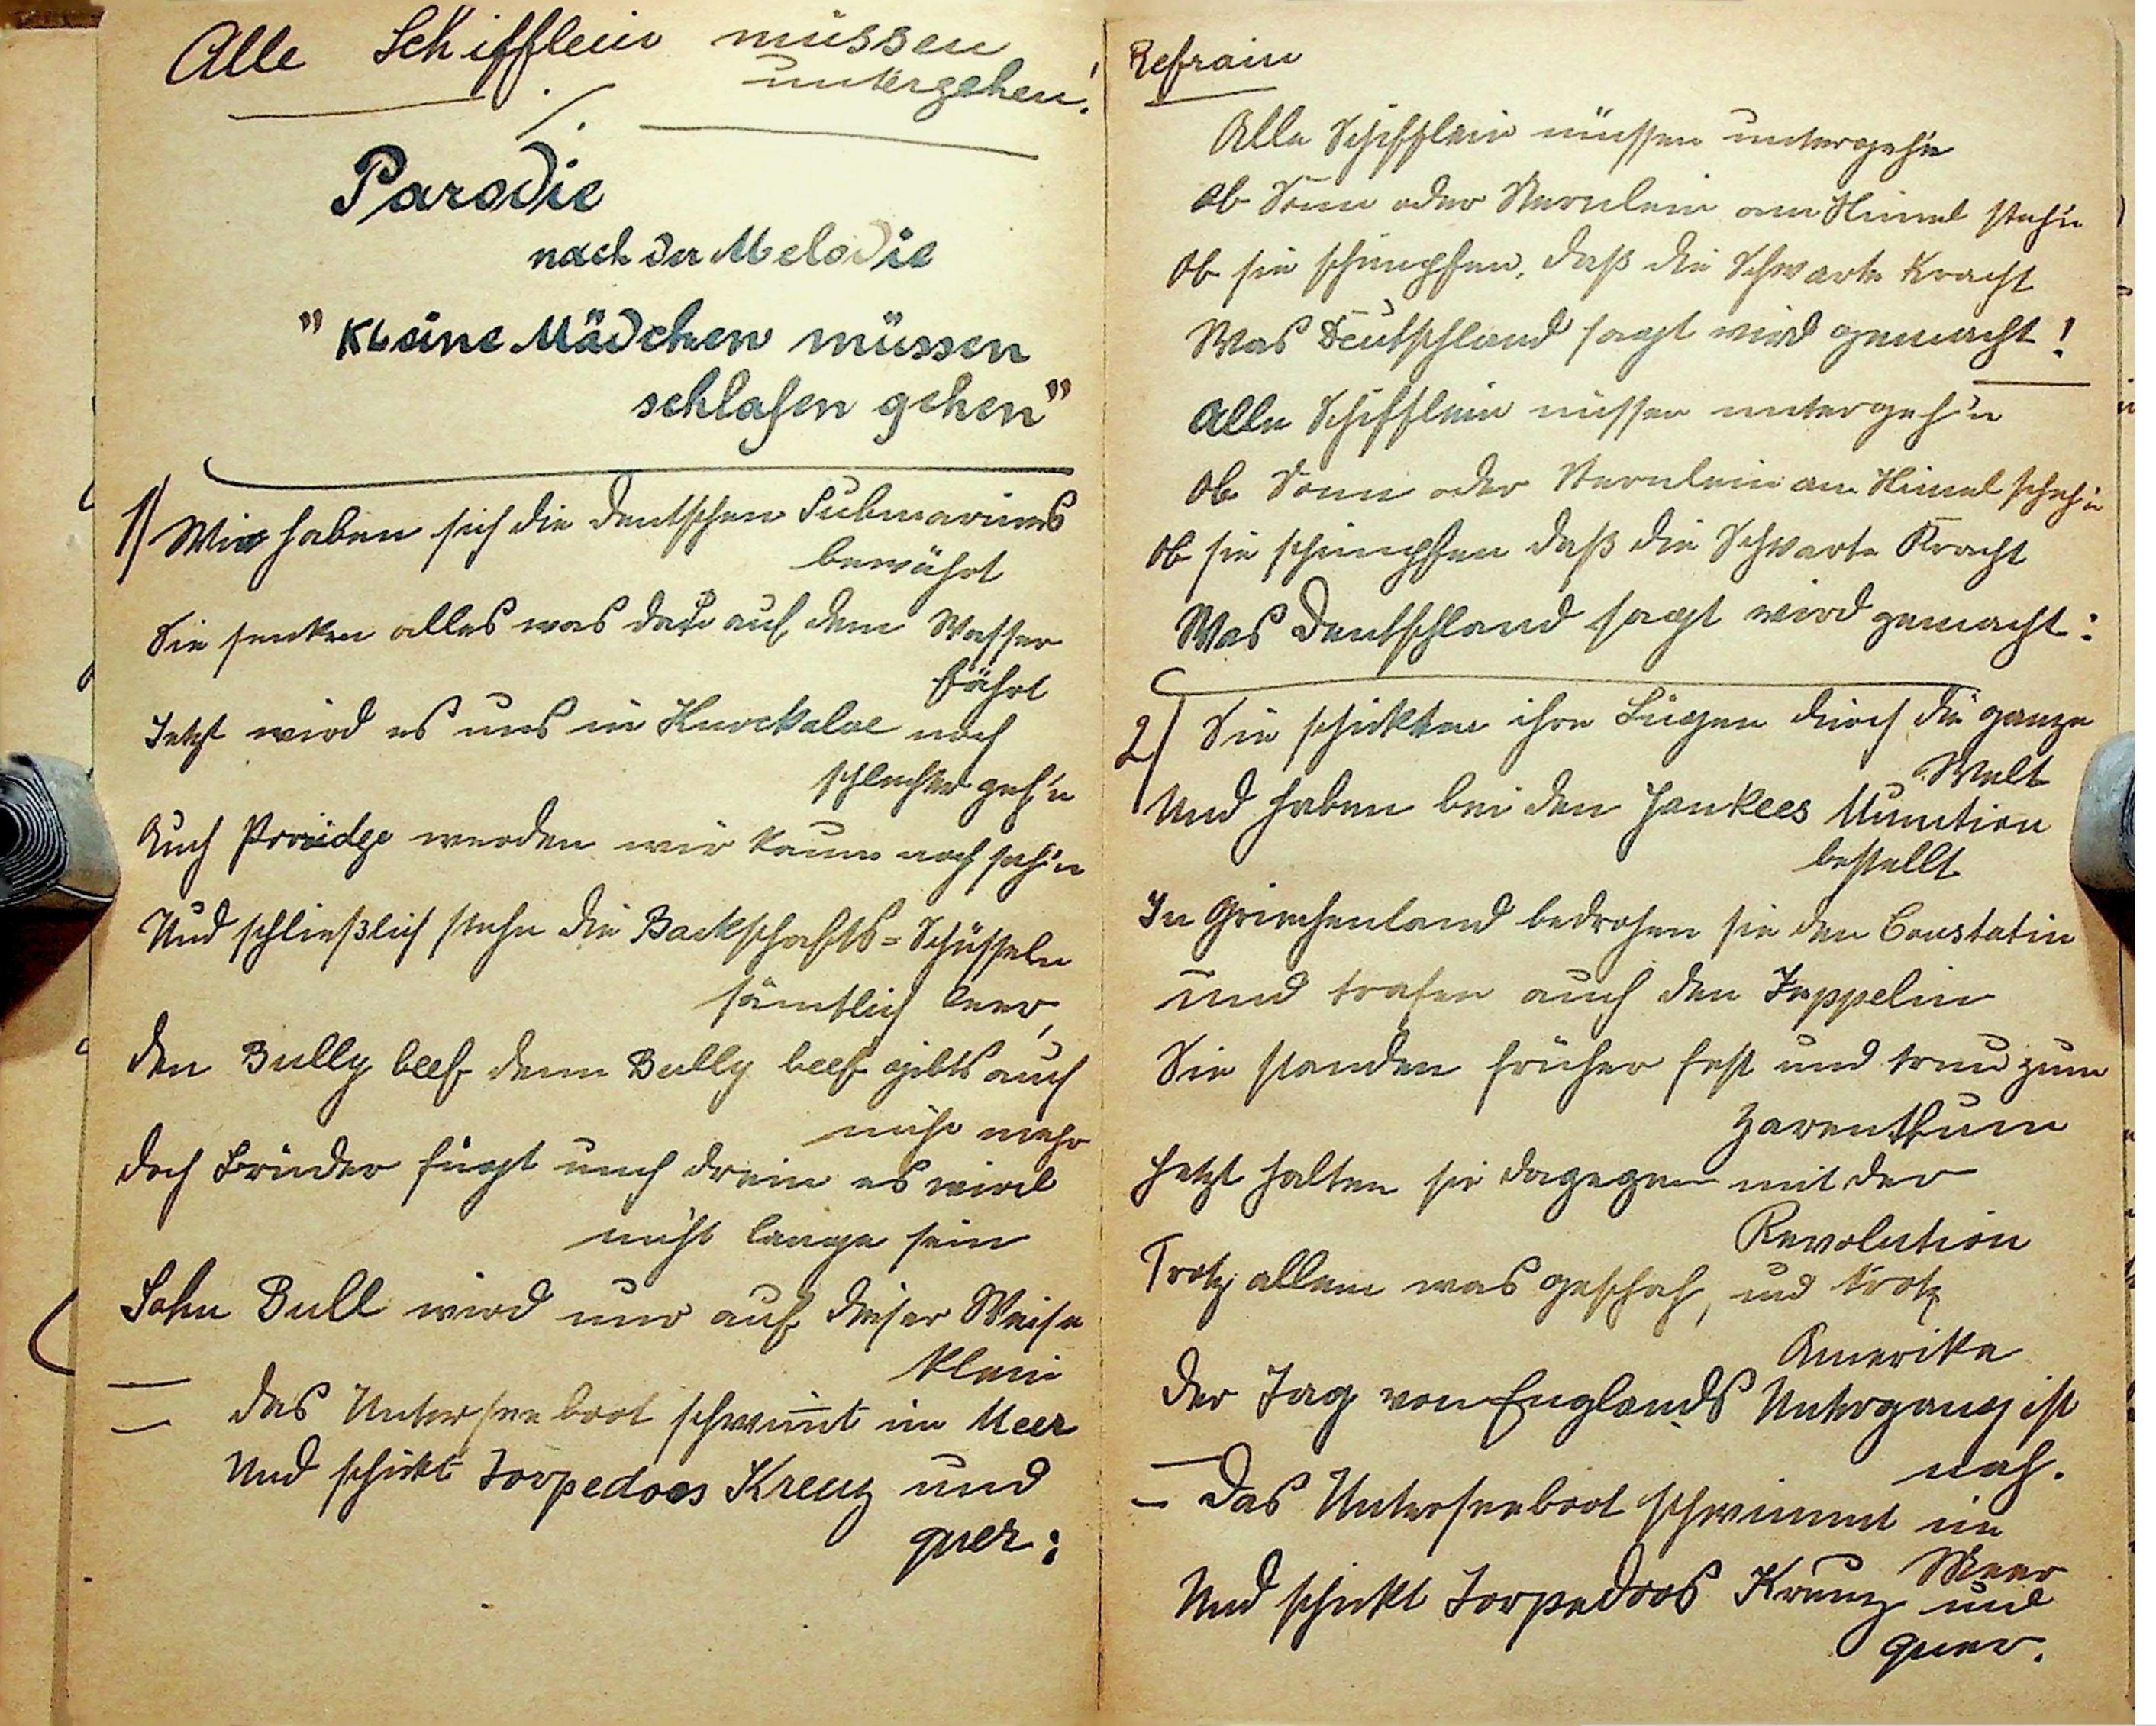 Alle Schifflein müssen
untergehen!
Parodie
nach der Melodie
"Kleine Mädchen müssen
schlafen gehen"
1) Wie haben sich die deutschen Submarines
bewährt
Sie senken alles was da auf dem Wasser
fährt
Jetzt wird es uns in Knockaloe noch
schlechter geh'n
Auch Porridge werden wir kaum noch seh'n
Und schließlich stehn die Backschafts-Schüsseln
sämtlich leer,
den Bully beef denn Bully beef gibts auch
nicht mehr
doch Brüder fügt euch drein es wird
nicht lange sein
John Bull wird nur auf dieser Weise
klein
— das Unterseeboot schwim̅t im Meer
— Und schickt Torpedoes Kreuz und
quer:
Refrain
Alle Schifflein müssen untergeh'n
Ob Sonn oder Sternlein am Him̅el steh'n
Ob sie schimpfen, daß die Schwarte Kracht
Was Deutschland sagt wird gemacht!
Alle Schifflein müssen untergeh'n
Ob Sonn oder Sternlein am Him̅el steh'n
Ob sie schimpfen daß die Schwarte Kracht
Was Deutschland sagt wird gemacht:
2) Sie schickten ihre Lügen durch die ganze
Welt
Und haben bei den Yankees Munition
bestellt
In Griechenland bedrohen sie den Constatin
und trafen auch den Zeppelin
Sie standen früher fest und treu zum
Zarenthum
Jetzt halten sie dagegen mit der
Revolution
Trotz allem was geschah, und trotz
Amerika
der Tag von Englands Untergang ist
nah.
— Das Unterseeboot schwimmt im
Meer
— Und schickt Torpedoos Kreuz und
quer.